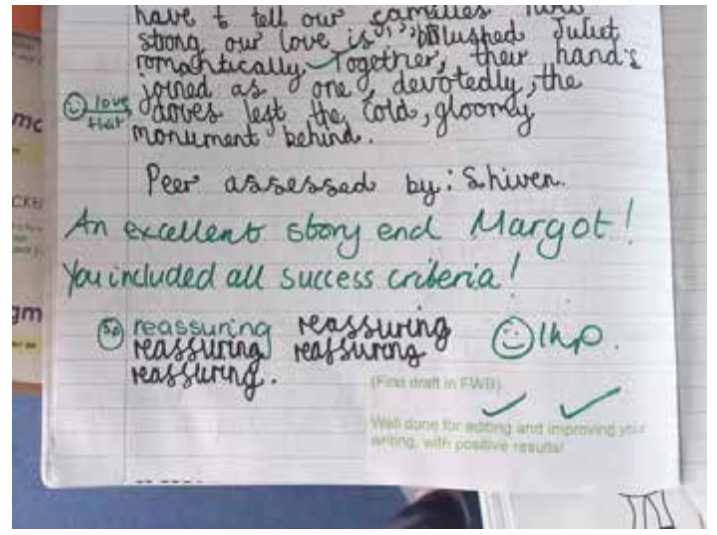 have to tell our families how
strong our love is," blushed Juliet
romantically. Together, their hand's
joined as one, devotedly, the
doves left the cold, gloomy
monument behind.
love
that
Peer assessed by: Shiven.
An excellent story end Margot!
You included all success criteria!
Sp reassuring reassuring
reassuring reassuring
reassuring.
1hp.
(First draft in FWB)
Well done for editing and improving your
writing, with positive results!